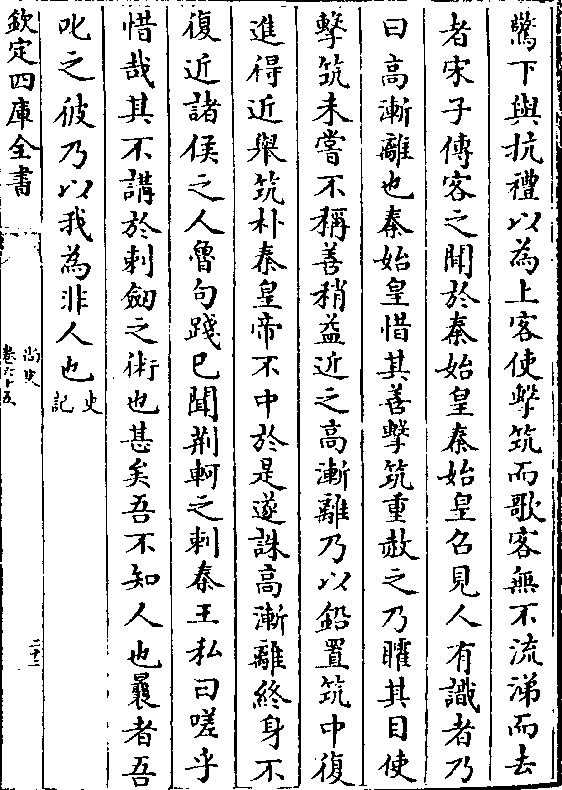 驚下與抗禮以為上客使擊筑而歌客無不流涕而去
者宋子傳客之聞於秦始皇秦始皇召見人有識者乃
曰高漸離也秦始皇惜其善擊筑重赦之乃矐其目使
擊筑未嘗不稱善稍益近之高漸離乃以鉛置筑中復
進得近舉筑朴秦皇帝不中於是遂誅高漸離終身不
復近諸侯之人魯句踐已聞荆軻之刺秦王私曰嗟乎
惜哉其不講於刺劒之術也甚矣吾不知人也曩者吾
叱之彼乃以我為非人也史記
欽定四庫全書
尚史
卷六十五